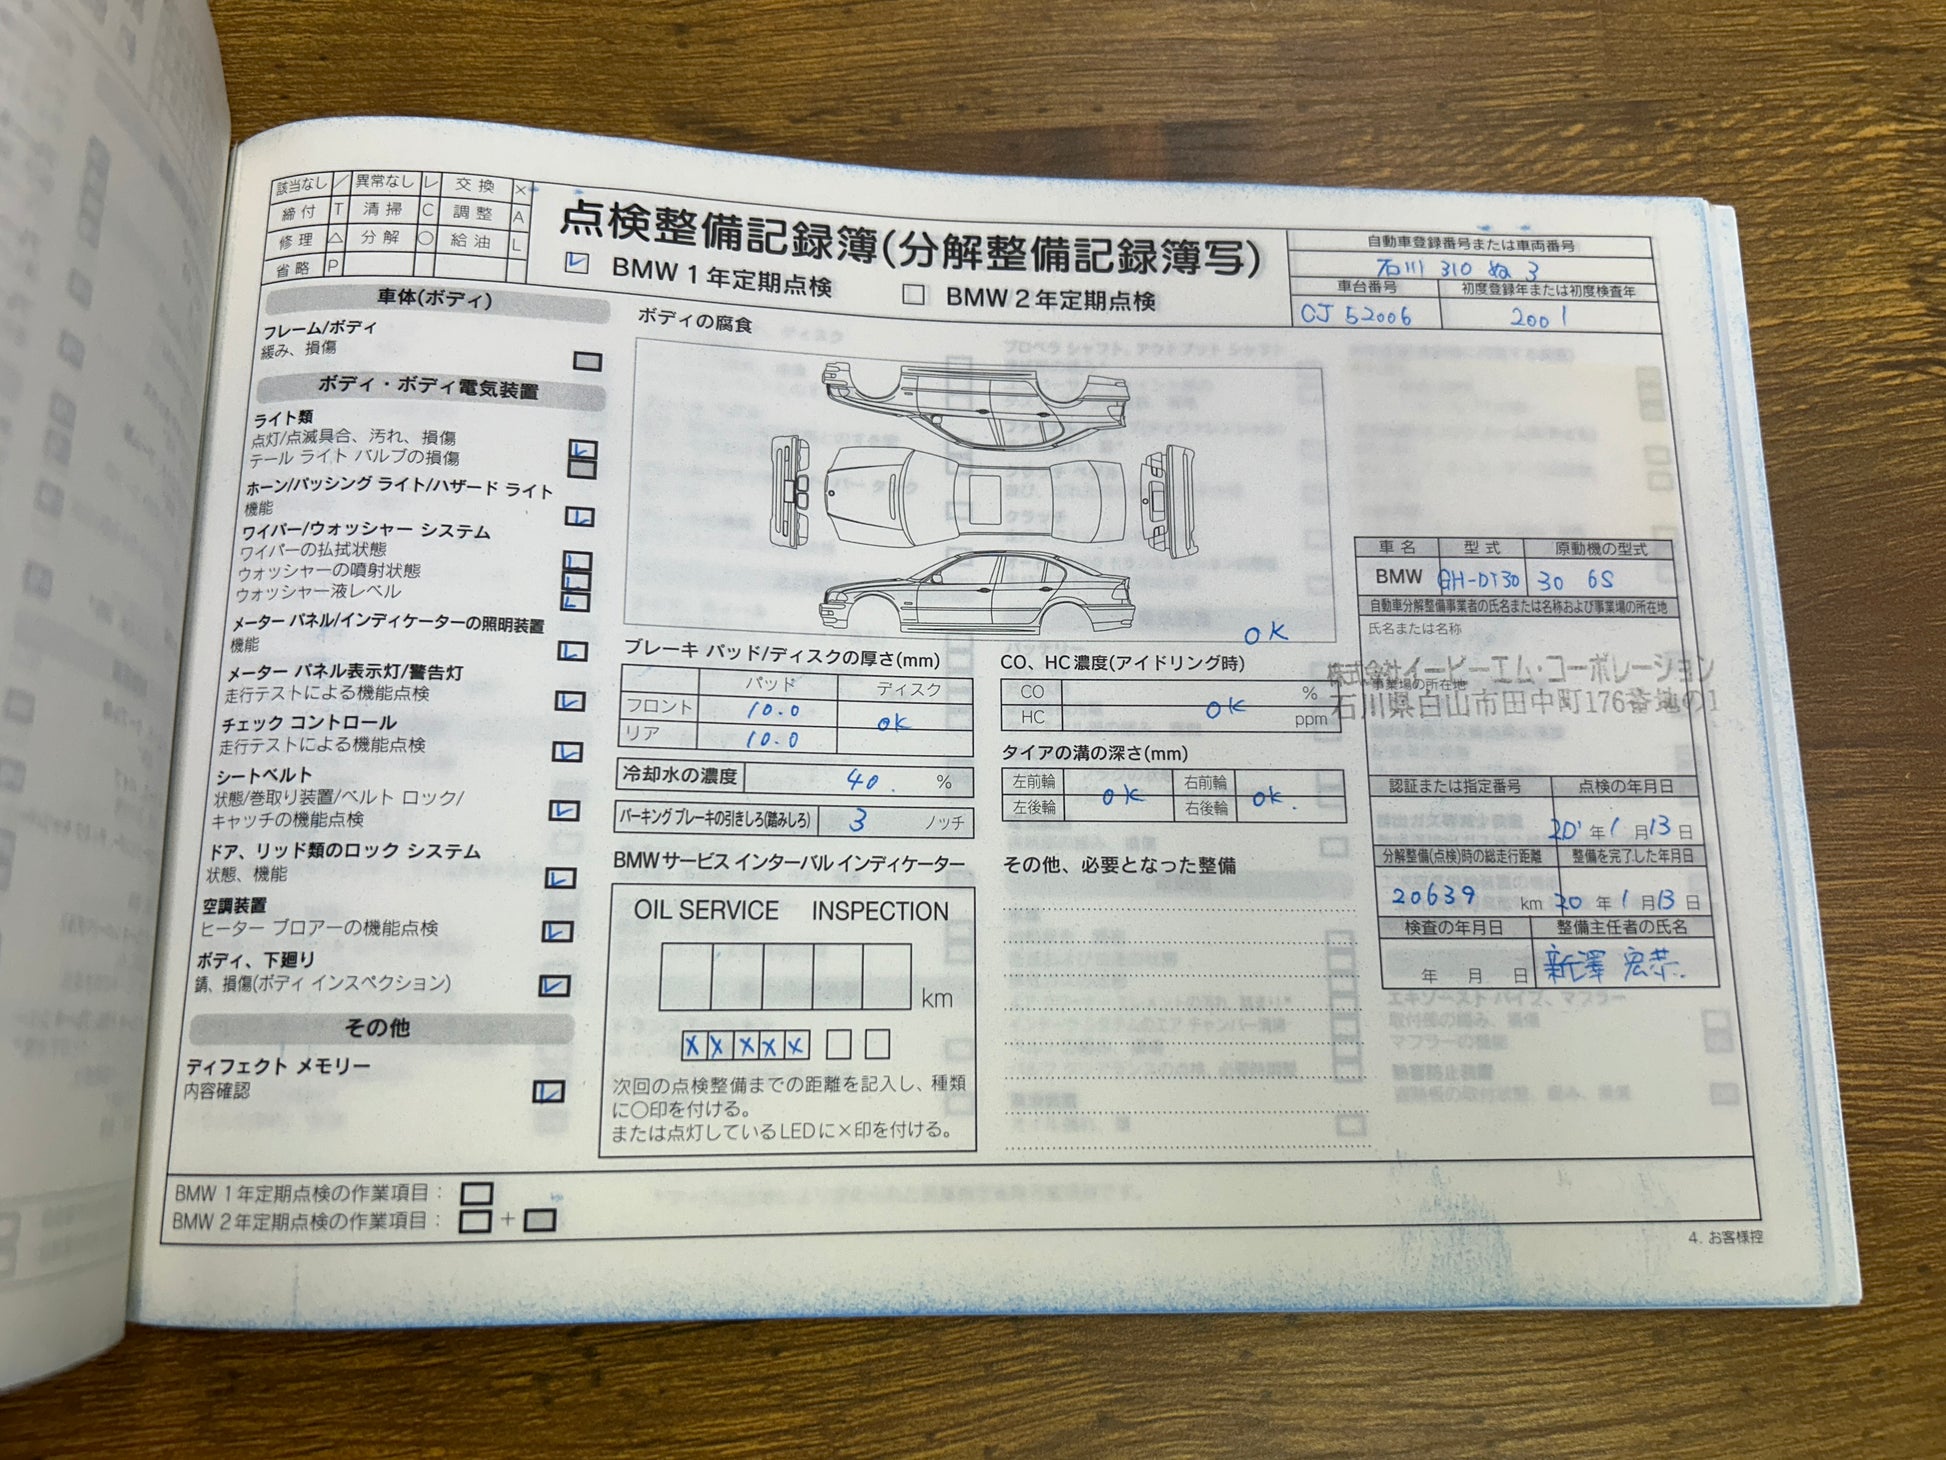 該当なし ／ 異常なし レ 交換 ×
締付 T 清掃 C 調整 A
修理 △ 分解 ○ 給油 L
省略 P
点検整備記録簿(分解整備記録簿写)
レ BMW 1年定期点検 BMW 2年定期点検
自動車登録番号または車両番号
石川 310 ぬ 3
車台番号 初度登録年または初度検査年
CJ 52006 2001
車体(ボディ)
フレーム/ボディ
緩み、損傷
ボディ・ボディ電気装置
ライト類
点灯/点滅具合、汚れ、損傷 レ
テール ライト バルブの損傷
ホーン/パッシング ライト/ハザード ライト
機能 レ
ワイパー/ウォッシャー システム
ワイパーの払拭状態 レ
ウォッシャーの噴射状態 レ
ウォッシャー液レベル レ
メーター パネル/インディケーターの照明装置
機能 レ
メーター パネル表示灯/警告灯
走行テストによる機能点検 レ
チェック コントロール
走行テストによる機能点検 レ
シートベルト
状態/巻取り装置/ベルト ロック/
キャッチの機能点検 レ
ドア、リッド類のロック システム
状態、機能 レ
空調装置
ヒーター ブロアーの機能点検 レ
ボディ、下廻り
錆、損傷(ボディ インスペクション) レ
その他
ディフェクト メモリー
内容確認 レ
ボディの腐食
OK
ブレーキ パッド/ディスクの厚さ(mm)
パッド ディスク
フロント 10.0 OK
リア 10.0
冷却水の濃度 40. %
パーキング ブレーキの引きしろ(踏みしろ) 3 ノッチ
BMWサービス インターバル インディケーター
OIL SERVICE INSPECTION
km
X X X X X
次回の点検整備までの距離を記入し、種類
に○印を付ける。
または点灯しているLEDに×印を付ける。
CO、HC濃度(アイドリング時)
CO OK %
HC ppm
タイアの溝の深さ(mm)
左前輪 OK 右前輪 OK.
左後輪 右後輪
その他、必要となった整備
車名 型式 原動機の型式
BMW GH-DT30 30 6S
自動車分解整備事業者の氏名または名称および事業場の所在地
氏名または名称
株式会社イービーエム・コーポレーション
事業場の所在地
石川県白山市田中町176番地の1
認証または指定番号 点検の年月日
20' 年 1 月 13 日
分解整備(点検)時の総走行距離 整備を完了した年月日
20639 km 20 年 1 月 13 日
検査の年月日 整備主任者の氏名
年 月 日 新澤 宏恭.
BMW 1年定期点検の作業項目：
BMW 2年定期点検の作業項目： +
4. お客様控